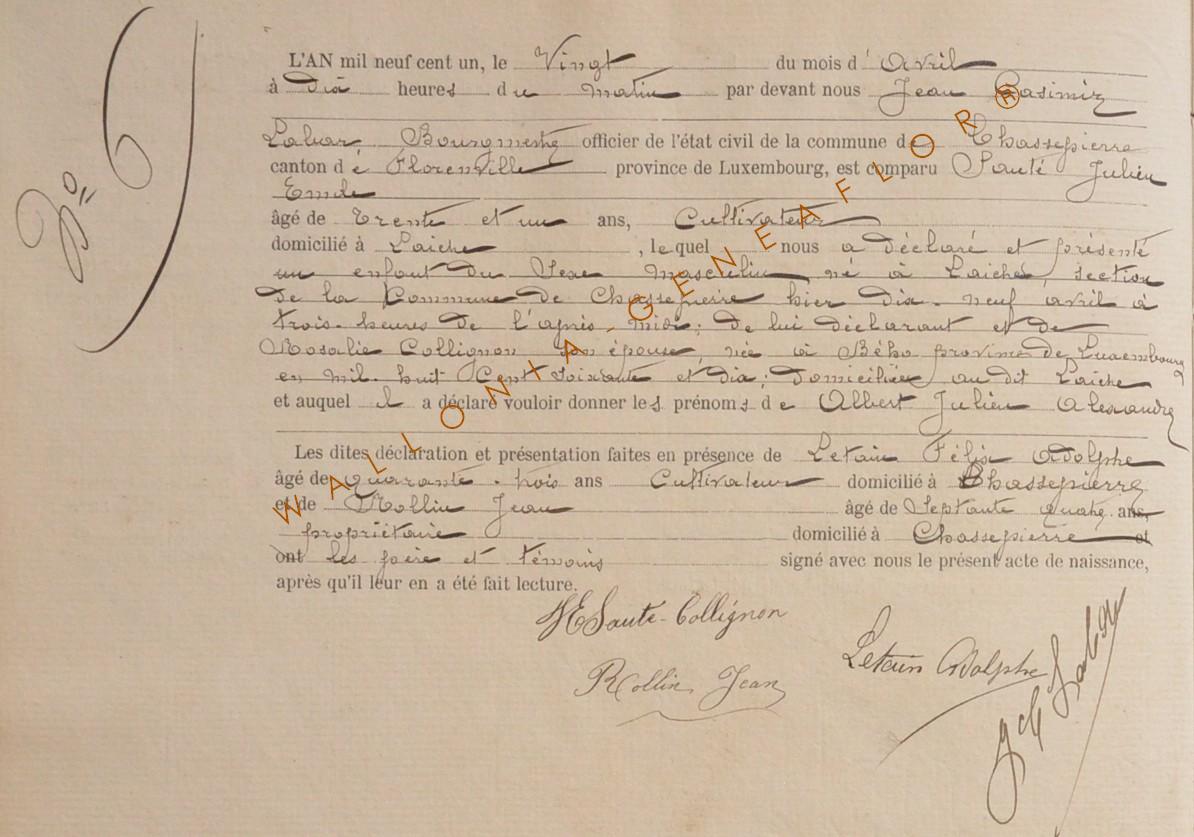 N° 6
L'AN mil neuf cent un, le Vingt du mois d'Avril
à Dix heures du Matin par devant nous Jean Casimir
Labar, Bourgmestre officier de l'état civil de la commune de Chassepierre
canton de Florenville province de Luxembourg, est comparu Santé Julien
Emile
âgé de Trente et un ans, Cultivateur
domicilié à Laiche , lequel nous a déclaré et présenté
un enfant du Sexe Masculin, né à Laiche, section
de la Commune de Chassepierre hier dix-neuf avril à
trois heures de l'après-midi; de lui déclarant et de
Rosalie Collignon son épouse, née à Bého province de Luxembourg
en mil huit Cent soixante et dix; domiciliée au dit Laiche
et auquel il a déclaré vouloir donner les prénoms de Albert Julien Alexandre
Les dites déclaration et présentation faites en présence de Letain Félix Adolphe
âgé de quarante-trois ans Cultivateur domicilié à Chassepierre
et de Rollin Jean âgé de Septante quatre ans,
propriétaire domicilié à Chassepierre et
ont les père et témoins signé avec nous le présent acte de naissance,
après qu'il leur en a été fait lecture.
JE Santé-Collignon
Letain Adolphe
Rollin Jean
J C Labar
WALLONIA GENEAFLOR ®